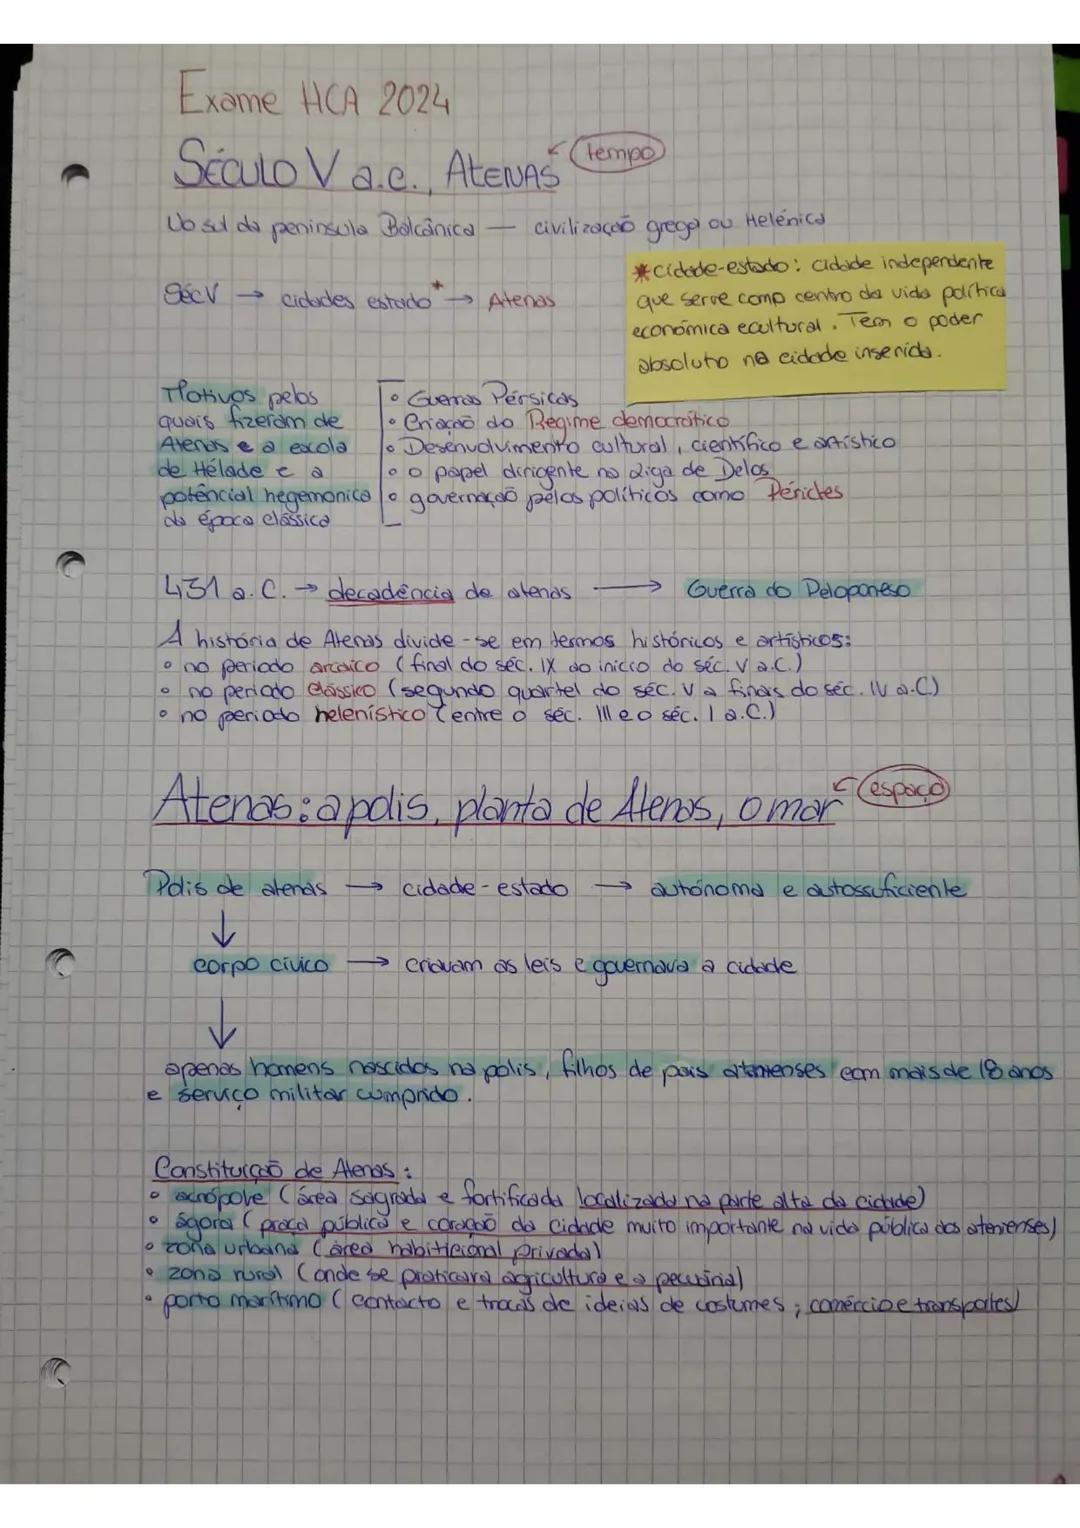 Exame HCA 2024
SÉCULO V a.c., ATENAS
tempo
No sul da península Balcânica — civilização grega ou Helénica
*cidade-estado: cidade independente
que serve como centro da vida política
económica e cultural. Tem o poder
absoluto na cidade inserida.
Séc V → cidades estado* → Atenas
Motivos pelos
quais fizeram de
Atenas e a escola
de Hélade e a
potêncial hegemonica
da época clássica
• Guerras Pérsicas
• Criação do Regime democrático
• Desenvolvimento cultural, científico e artístico
• o papel dirigente na Liga de Delos
• governação pelos políticos como Péricles
431 a.C. → decadência de atenas → Guerra do Peloponeso
A história de Atenas divide-se em termos históricos e artísticos:
• no periodo arcaico (final do séc. IX ao inicio do séc. V a.C.)
• no periodo clássico (segundo quartel do séc. V a finais do séc. IV a.C)
• no periodo helenístico (entre o séc. III e o séc. I a.C.)
Atenas: a polis, planta de Atenas, o mar
espaço
Polis de atenas → cidade-estado → autónoma e autossuficiente
↓
corpo cívico → criavam as leis e governava a cidade
↓
apenas homens nascidos na polis, filhos de pais atenienses com mais de 18 anos
e serviço militar cumprido.
Constituição de Atenas:
• acrópole (área sagrada e fortificada localizada na parte alta da cidade)
• ágora (praça pública e coração da cidade muito importante na vida pública dos atenienses)
• zona urbana (área habiticional privada)
• zona rural (onde se praticava agricultura e a pecuária)
• porto marítimo (contacto e trocas de ideias de costumes; comércio e transportes)